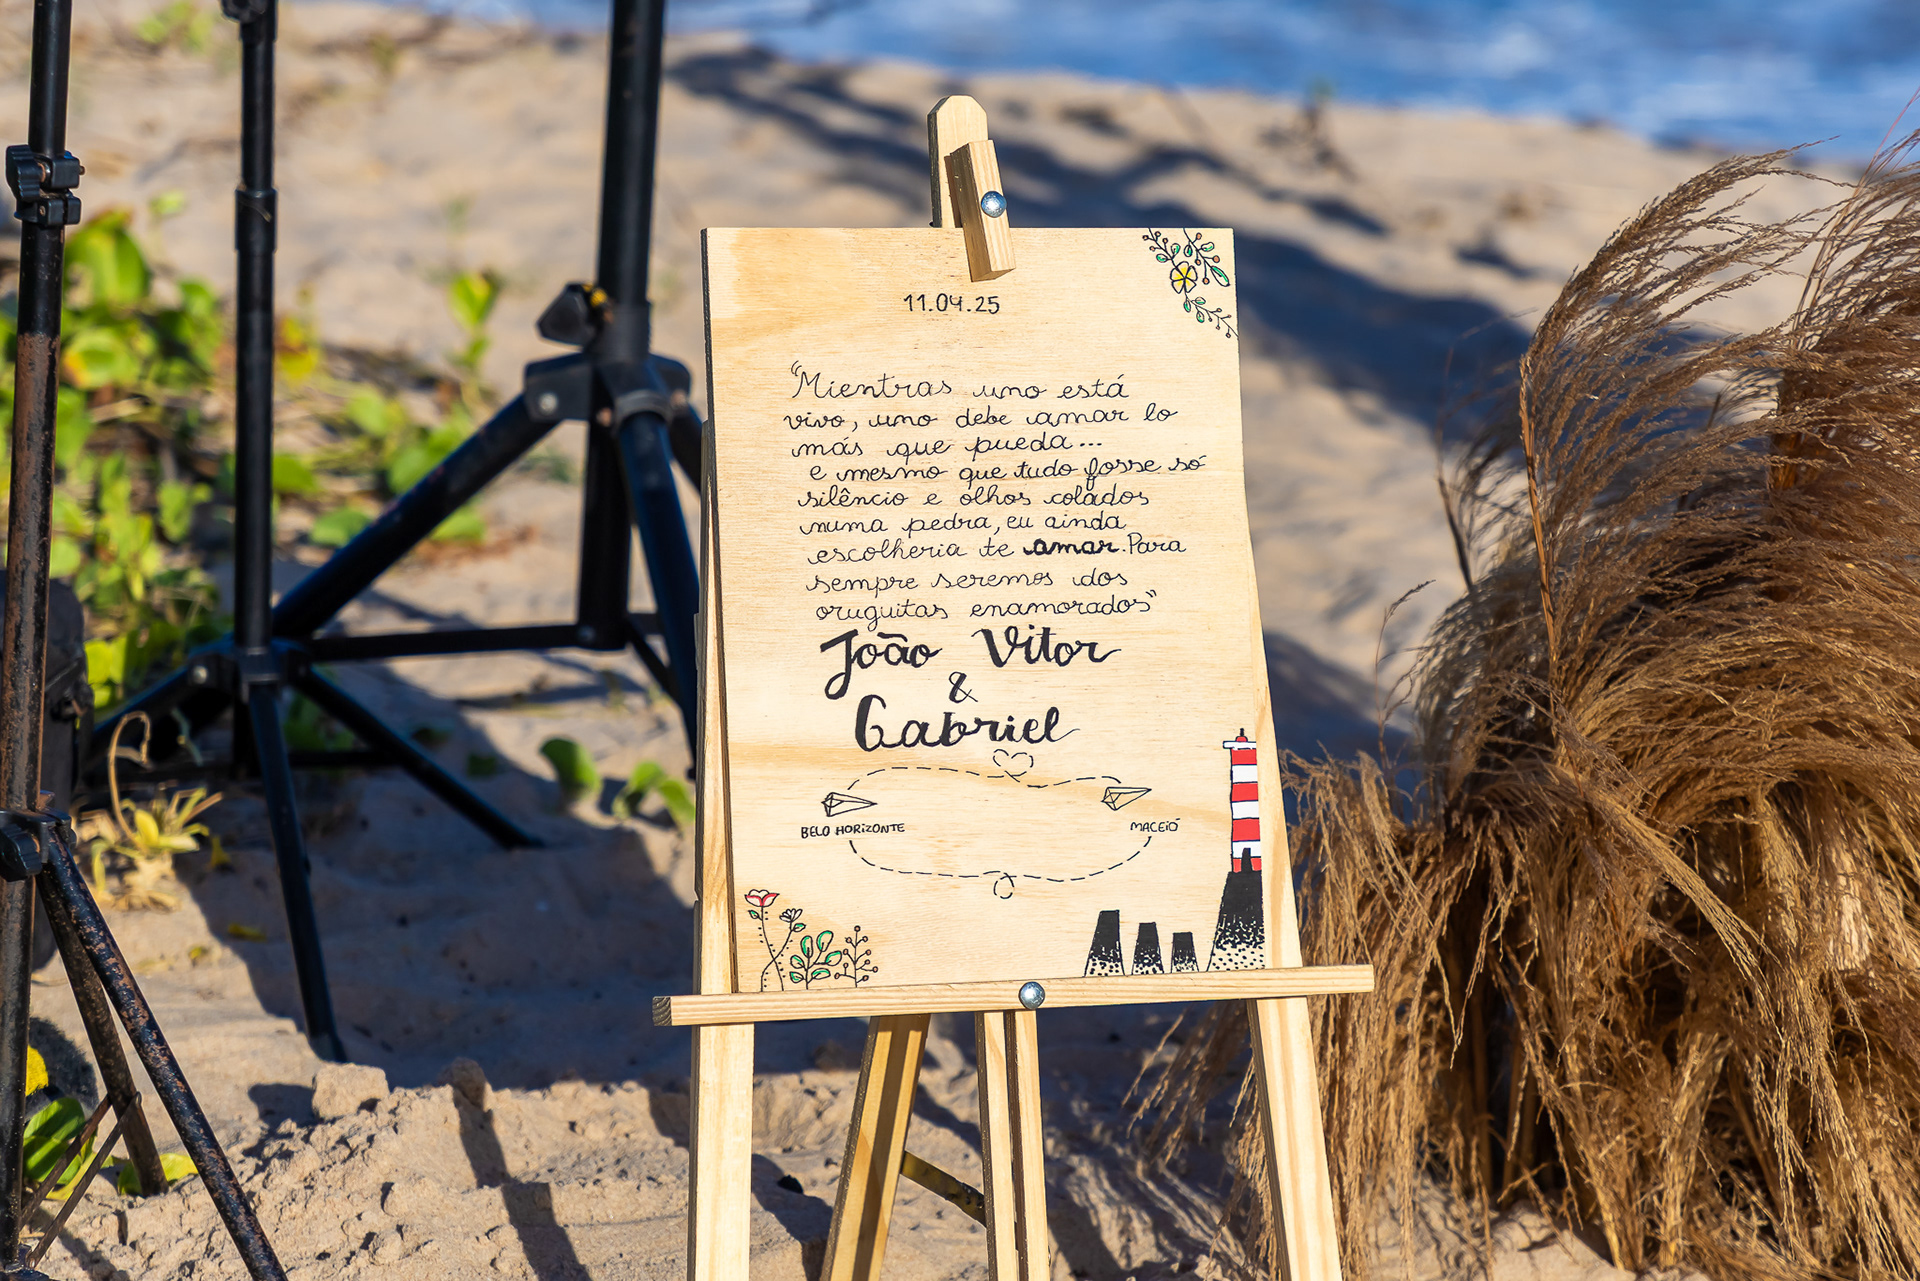 11.04.25
"Mientras uno está
vivo, uno debe amar lo
más que pueda...
e mesmo que tudo fosse só
silêncio e olhos colados
numa pedra, eu ainda
escolheria te amar. Para
sempre seremos dos
oruguitas enamorados"
João Vitor
&
Gabriel
BELO HORIZONTE MACEIÓ